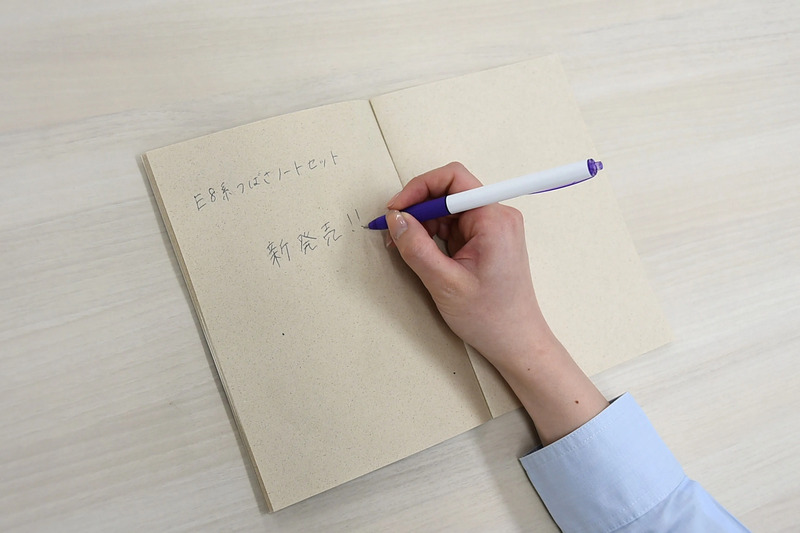 E8系つばさノートセット
新発売!!